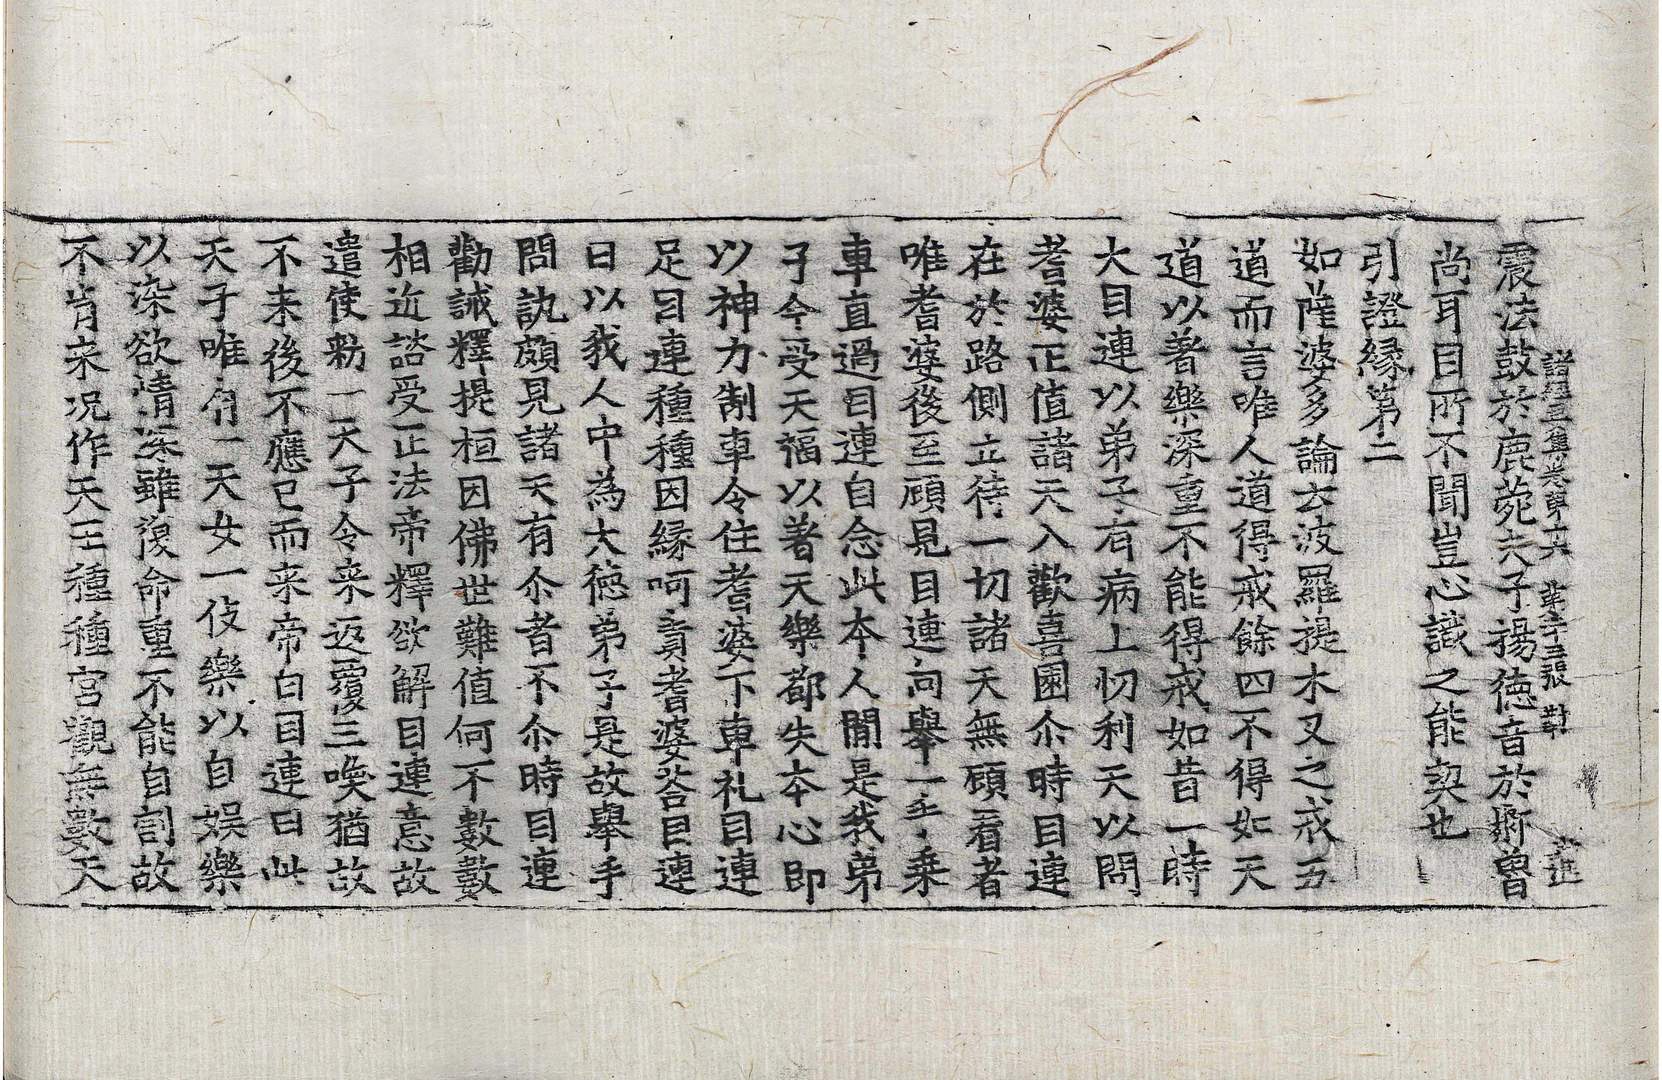 諸經要集卷第六 第二十三張 對
震法鼓於鹿菀夫子揚德音於鄹魯
尚耳目所不聞豈心識之能契也
引證緣第二
如薩婆多論云波羅提木叉之戒五
道而言唯人道得戒餘四不得如天
道以著樂深重不能得戒如昔一時
大目連以弟子有病上忉利天以問
耆婆正值諸天入歡喜園尒時目連
在於路側立待一切諸天無顧看者
唯耆婆後至顧見目連向舉一手乗
車直過目連自念此本人間是我弟
子今受天福以著天樂都失本心即
以神力制車令住耆婆下車礼目連
足目連種種因緣呵責耆婆荅目連
曰以我人中為大德弟子是故舉手
問訊頗見諸天有尒者不尒時目連
勸誡釋提桓因佛世難值何不數數
相近諮受正法帝釋欲解目連意故
遣使勑一天子令来返覆三喚猶故
不来後不應已而来帝白目連曰此
天子唯有一天女一伎樂以自娛樂
以染欲情深雖復命重不能自割故
不肯来况作天王種種宮觀無數天